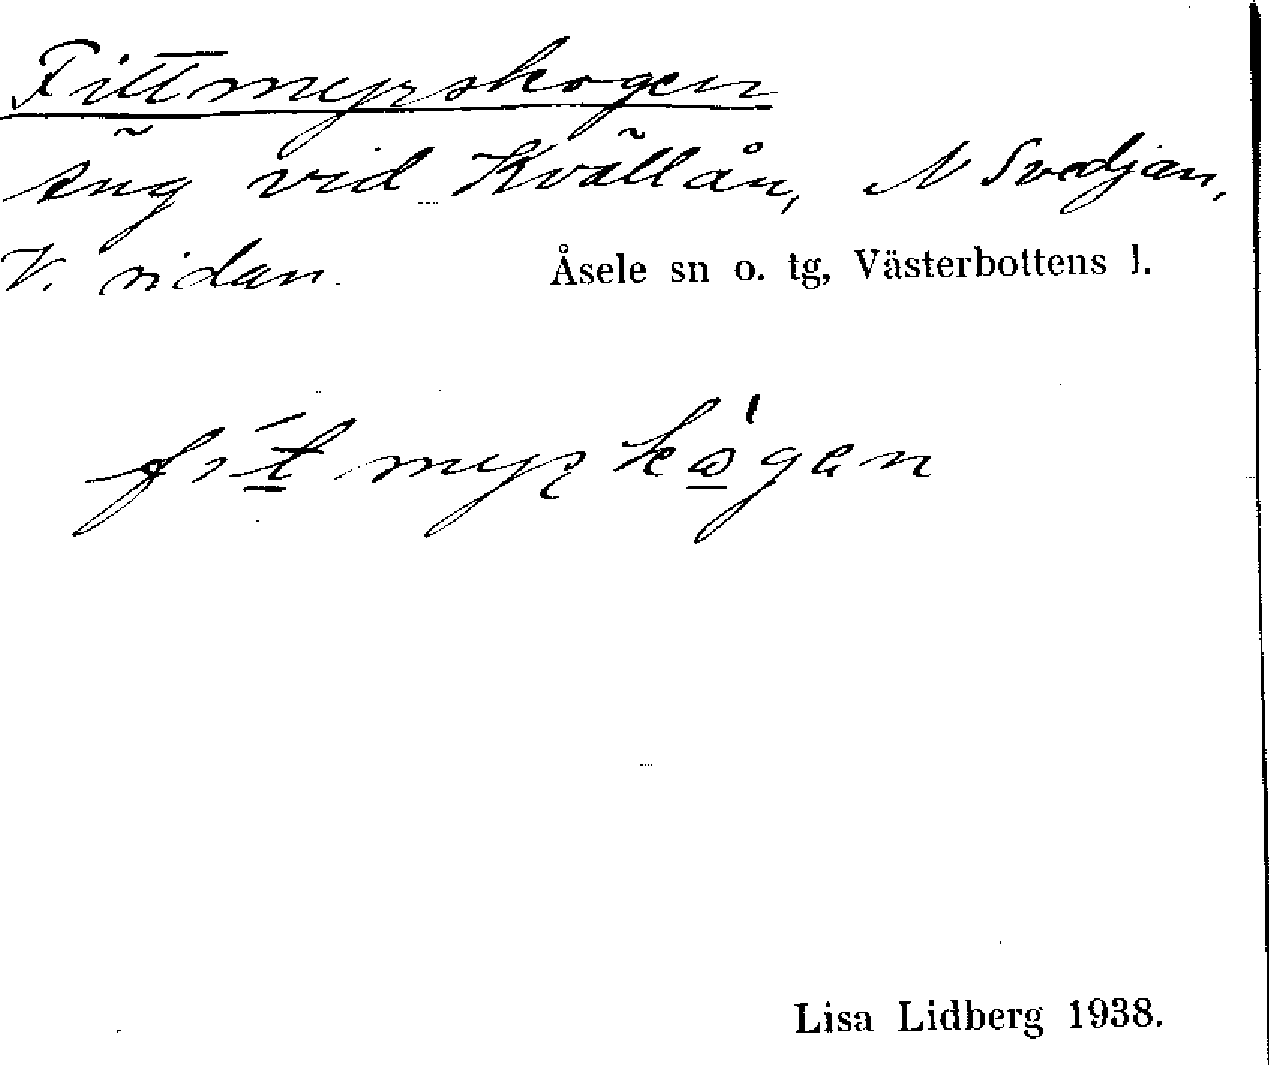 Fittmyrskogen
äng vid Kvällån, N Svedjan,
V. sidan. Åsele sn o. tg, Västerbottens l.
Lisa Lidberg 1938.